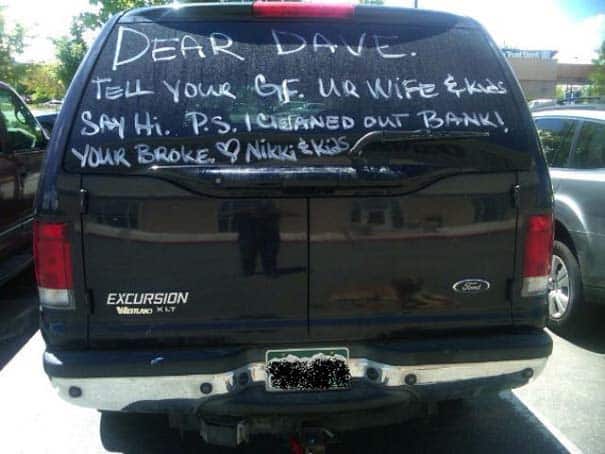 DEAR DAVE.
TELL YOUR GF. UR WIFE & KidS
SAY Hi. P.S. I CLEANED OUT BANK!
YOUR BROKE. ♡ Nikki & KidS
EXCURSION
XLT
Ford